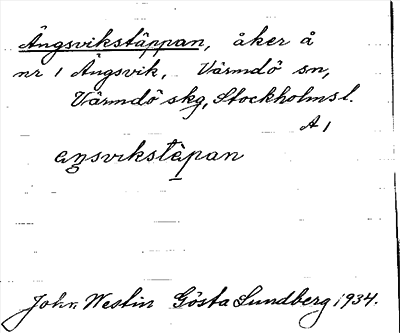 Ängsvikstäppan, åker å
nr 1 Ängsvik, Värmdö sn,
Värmdö skg, Stockholms l.
A 1
aŋsvikstäpan
John Westin Gösta Sundberg 1934.